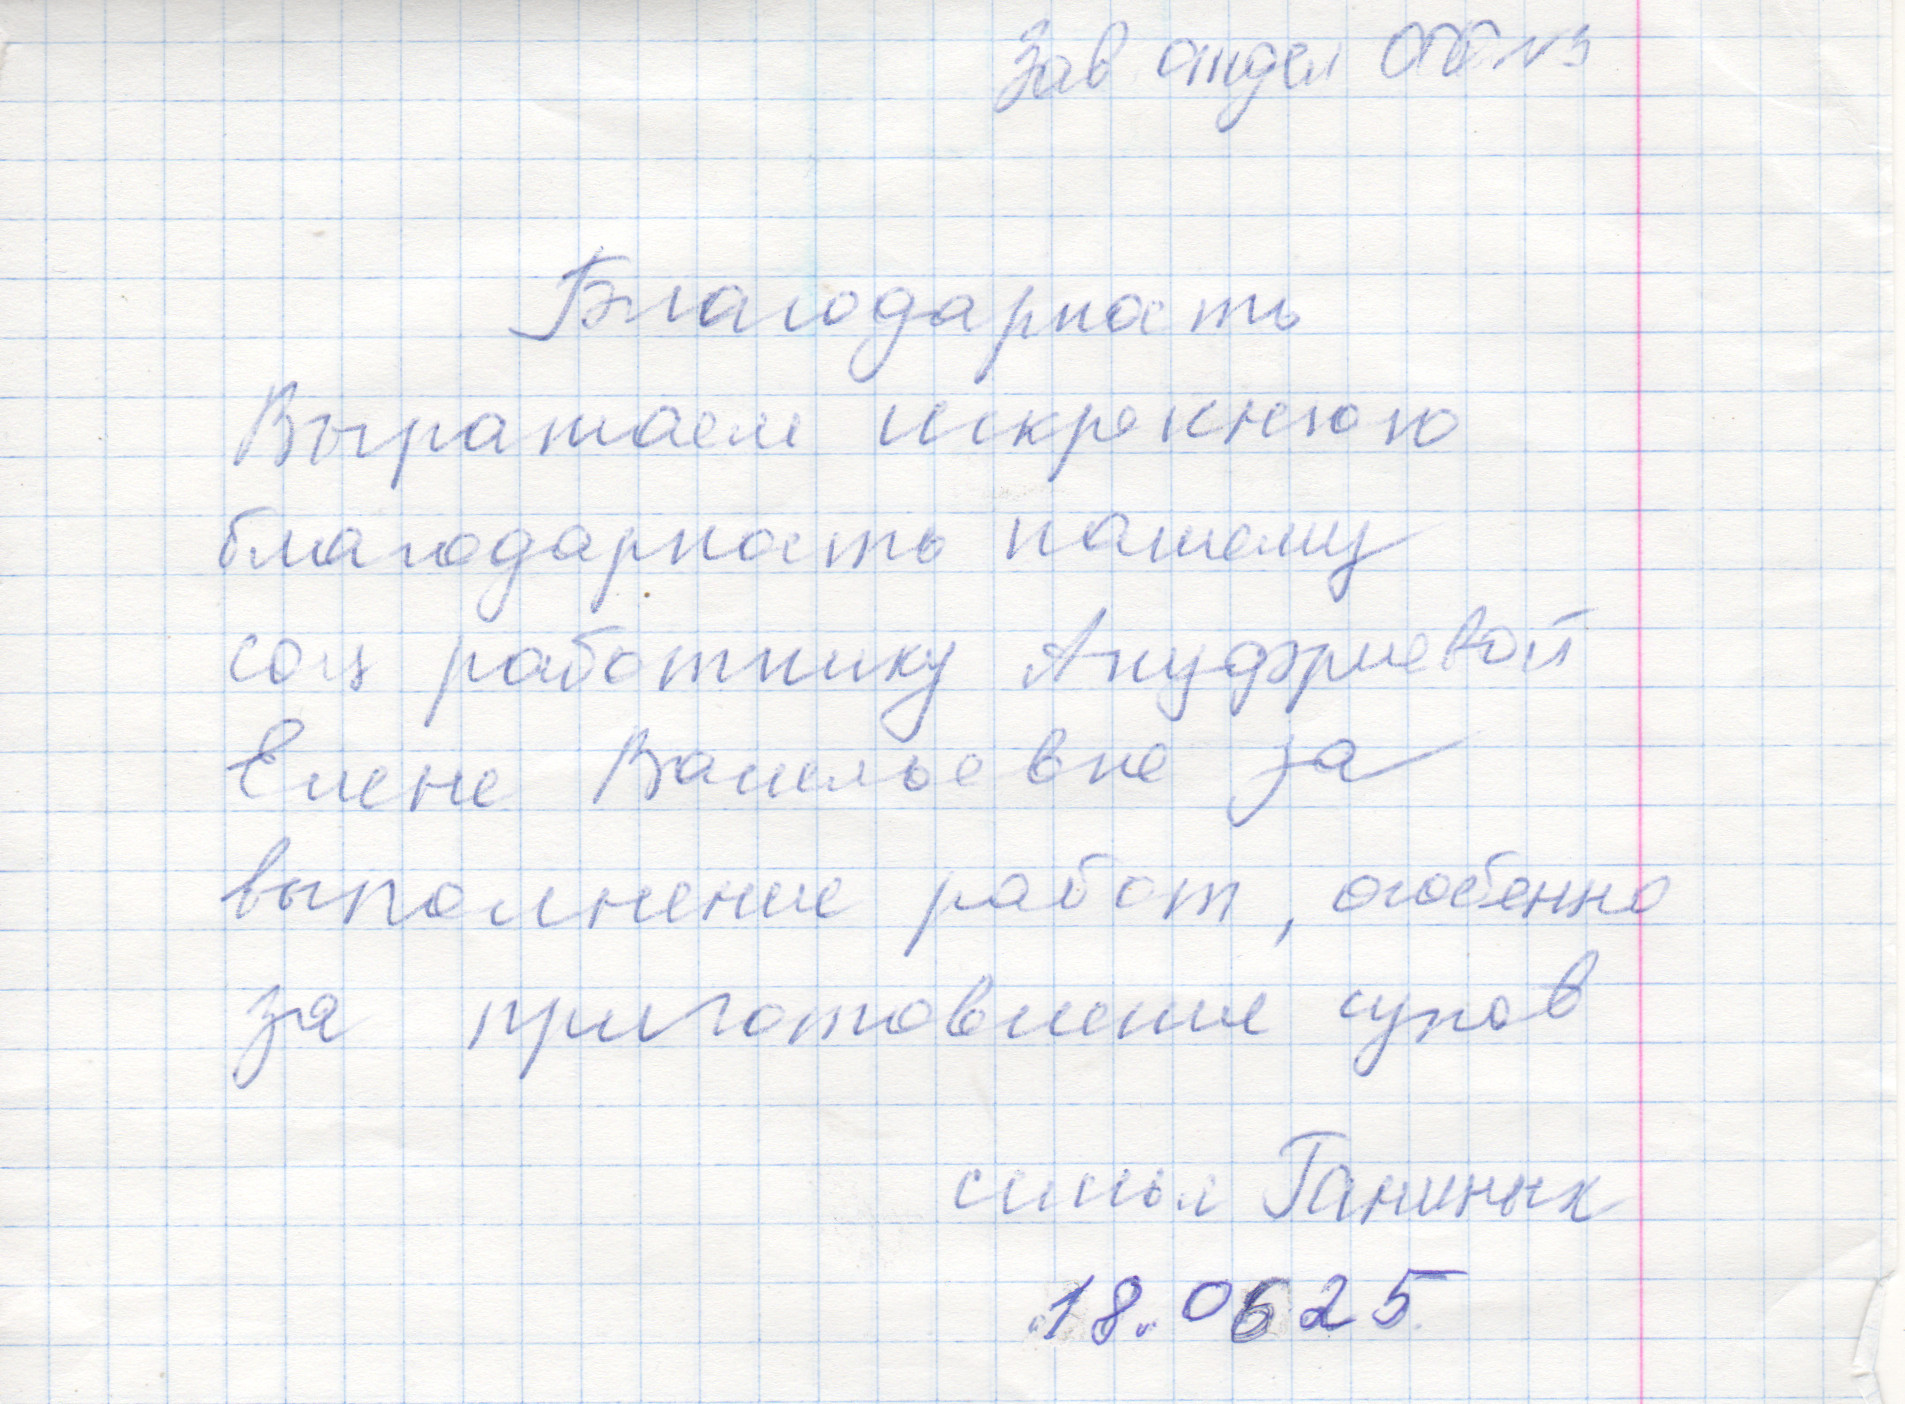 Зав отдел ОСО №3
Благодарность
Выражаем искреннюю
благодарность нашему
соц работнику Ануфриевой
Елене Васильевне за
выполнение работ, особенно
за приготовление супов
семья Ганиных
18.06 25